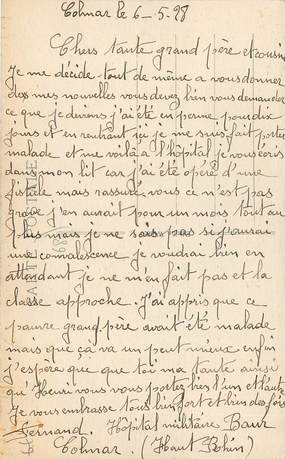 Colmar le 6-5.28
Chers tante grand père et cousin
Je me décide tout de même a vous donner
des mes nouvelles vous devez bien vous demander
ce que je deviens j'ai été en perme pour dix
jours et en rentrant ici je me suis fait porter
malade et me voilà a l'hôpital je vous écris
dans mon lit car j'ai été opéré d'une
fistule mais rassurez vous ce n'est pas
grave j'en aurait pour un mois tout au
plus mais je ne sais pas si j'aurai
une convalescence je voudrai bien en
attendant je ne m'en fait pas et la
classe approche. J'ai appris que ce
pauvre grand père avait été malade
mais que ça va un peut mieux enfin
j'espère que que toi ma tante ainsi
qu'Henri vous vous portez bien l'un et l'autre
Je vous embrasse tous bien fort et bien des fois
Fernand. Hôpital militaire Baur
Colmar. (Haut Rhin)